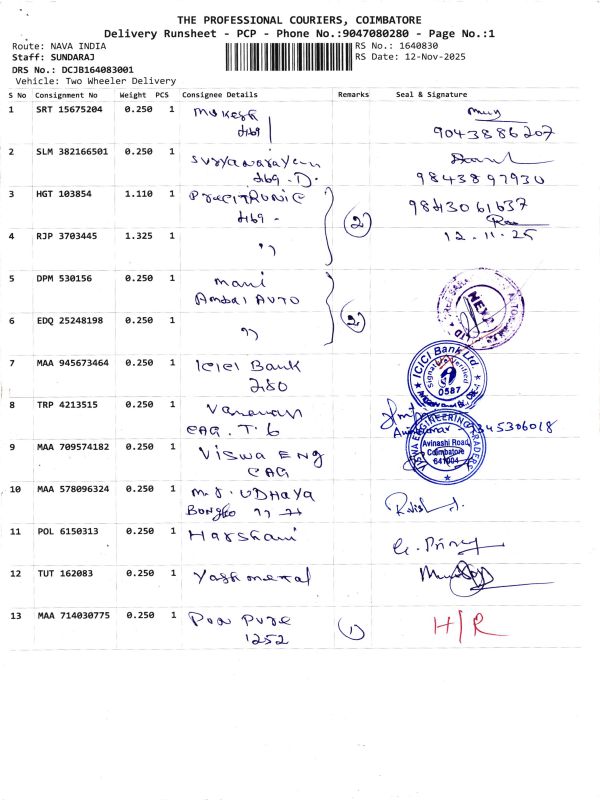 THE PROFESSIONAL COURIERS, COIMBATORE
Delivery Runsheet - PCP - Phone No.:9047080280 - Page No.:1
Route: NAVA INDIA
RS No.: 1640830
Staff: SUNDARAJ
RS Date: 12-Nov-2025
DRS No.: DCJB164083001
Vehicle: Two Wheeler Delivery
S No Consignment No Weight PCS Consignee Details Remarks Seal & Signature
1 SRT 15675204 0.250 1 Mukesh
9043886207
2 SLM 382166501 0.250 1
9843897930
3 HGT 103854 1.110 1 2 9843061637
4 RJP 3703445 1.325 1 " 12.11.25
5 DPM 530156 0.250 1 mani
Ambal AUTO
6 EDQ 25248198 0.250 1 " 2
7 MAA 945673464 0.250 1 ICICI Bank
ICICI Bank Ltd
Signature Verified
0587
8 TRP 4213515 0.250 1
CAG. T. 6
9 MAA 709574182 0.250 1 VISWA ENG
CAG
VISWA ENGINEERING TRADERS
Avinashi Road,
Coimbatore
641004
10 MAA 578096324 0.250 1 UDHAYA
11 POL 6150313 0.250 1 Harshani
12 TUT 162083 0.250 1 Yash metal
13 MAA 714030775 0.250 1 1 H/R
1252